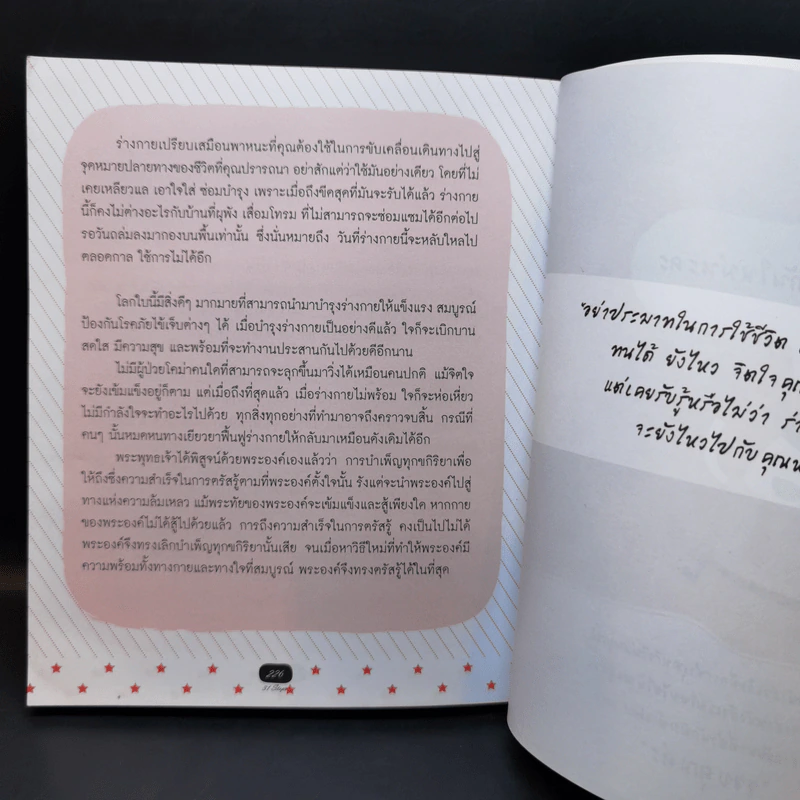 ร่างกายเปรียบเสมือนพาหนะที่คุณต้องใช้ในการขับเคลื่อนเดินทางไปสู่
จุดหมายปลายทางของชีวิตที่คุณปรารถนา อย่าสักแต่ว่าใช้มันอย่างเดียว โดยที่ไม่
เคยเหลียวแล เอาใจใส่ ซ่อมบำรุง เพราะเมื่อถึงขีดสุดที่มันจะรับได้แล้ว ร่างกาย
นี้ก็คงไม่ต่างอะไรกับบ้านที่ผุพัง เสื่อมโทรม ที่ไม่สามารถจะซ่อมแซมได้อีกต่อไป
รอวันถล่มลงมากองบนพื้นเท่านั้น ซึ่งนั่นหมายถึง วันที่ร่างกายนี้จะหลับใหลไป
ตลอดกาล ใช้การไม่ได้อีก
โลกใบนี้มีสิ่งดีๆ มากมายที่สามารถนำมาบำรุงร่างกายให้แข็งแรง สมบูรณ์
ป้องกันโรคภัยไข้เจ็บต่างๆ ได้ เมื่อบำรุงร่างกายเป็นอย่างดีแล้ว ใจก็จะเบิกบาน
สดใส มีความสุข และพร้อมที่จะทำงานประสานกันไปด้วยดีอีกนาน
ไม่มีผู้ป่วยโคม่าคนใดที่สามารถจะลุกขึ้นมาวิ่งได้เหมือนคนปกติ แม้จิตใจ
จะยังเข้มแข็งอยู่ก็ตาม แต่เมื่อถึงที่สุดแล้ว เมื่อร่างกายไม่พร้อม ใจก็จะห่อเหี่ยว
ไม่มีกำลังใจจะทำอะไรไปด้วย ทุกสิ่งทุกอย่างที่ทำมาอาจถึงคราวจบสิ้น กรณีที่
คนๆ นั้นหมดหนทางเยียวยาฟื้นฟูร่างกายให้กลับมาเหมือนดังเดิมได้อีก
พระพุทธเจ้าได้พิสูจน์ด้วยพระองค์เองแล้วว่า การบำเพ็ญทุกขกิริยาเพื่อ
ให้ถึงซึ่งความสำเร็จในการตรัสรู้ตามที่พระองค์ตั้งใจนั้น รังแต่จะนำพระองค์ไปสู่
ทางแห่งความล้มเหลว แม้พระทัยของพระองค์จะเข้มแข็งและสู้เพียงใด หากกาย
ของพระองค์ไม่ได้สู้ไปด้วยแล้ว การถึงความสำเร็จในการตรัสรู้ คงเป็นไปไม่ได้
พระองค์จึงทรงเลิกบำเพ็ญทุกขกิริยานั้นเสีย จนเมื่อหาวิธีใหม่ที่ทำให้พระองค์มี
ความพร้อมทั้งทางกายและทางใจที่สมบูรณ์ พระองค์จึงทรงตรัสรู้ได้ในที่สุด
226
"อย่าประมาทในการใช้ชีวิต
ทนได้ ยังไหว จิตใจคุณ
แต่เคยรับรู้หรือไม่ว่า
จะยังไหวไปกับคุณ